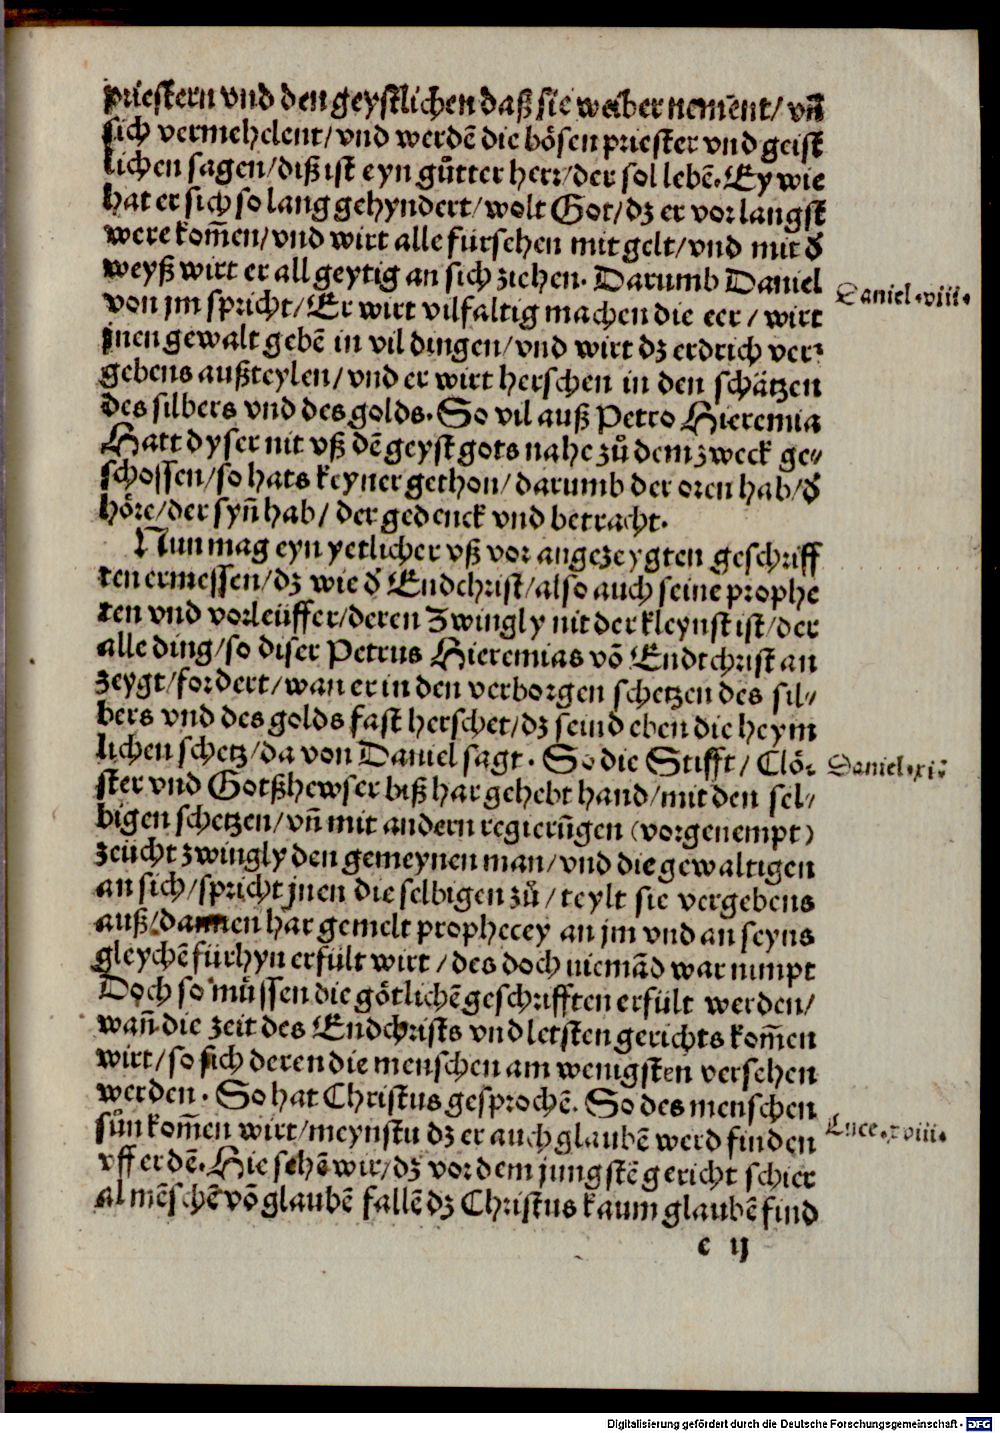 priestern vnd den geystlichen daß sie weiber nement/ vñ
sich vermehelent/ vnd werdē die bösen priester vnd geist
lichen sagen/ diß ist eyn gůtter herr/ der sol lebē. Ey wie
hat er sich so lang gehyndert/ wolt Got/ dz er vor langst
were kom̄en/ vnd wirt alle fürsehen mit gelt/ vnd mit d̕
weyß wirt er all geytig an sich ziehen. Darumb Daniel
Daniel.viii.
von jm spricht/ Er wirt vilfaltig machen die eer/ wirt
jnen gewalt gebē in vil dingen/ vnd wirt dz erdrich ver⸗
gebens außteylen/ vnd er wirt herschen in den schätzen
des silbers vnd des golds. So vil auß Petro Hieremia
Hatt dyser nit vß dē geyst gots nahe zů dem zweck ge⸗
schossen/ so hats keyner gethon/ darumb der oren hab/ d̕
höre/ der syn̄ hab/ der gedenck vnd betracht.
Nun mag eyn yetlicher vß vor angezeygten geschriff
ten ermessen/ dz wie d̕ Endchrist/ also auch seine prophe
ten vnd vorleüffer/ deren Zwingly nit der kleynst ist/ der
alle ding/ so diser Petrus Hieremias vō Endtchrist an
zeygt/ fordert/ wan er in den verborgen schetzen des sil⸗
bers vnd des golds fast herschet/ dz seind eben die heym
lichen schetz/ da von Daniel sagt. So die Stifft/ Clö⸗
Daniel.xi.
ster vnd Gotßhewser biß har gehebt hand/ mit den sel⸗
bigen schetzen/ vñ mit andern regierūgen (vorgenempt)
zeücht zwingly den gemeynen man/ vnd die gewaltigen
an sich/ spricht jnen die selbigen zů/ teylt sie vergebens
auß/ dannen har gemelt prophecey an jm vnd an seyns
gleychē fürhyn erfült wirt/ des doch niemād war nimpt
Doch so müssen die götlichē geschrifften erfült werden/
wan̄ die zeit des Endchrists vnd letsten gerichts kom̄en
wirt/ so sich deren die menschen am wenigsten versehen
werden. So hat Christus gesprochē. So des menschen
sůn kom̄en wirt/ meynstu dz er auch glaubē werd finden
Luce.xviii.
vff erdē. Hie sehē wir/ dz vor dem jungstē gericht schier
al mēschē vō glaubē fallē dz Christus kaum glaubē find
c ij
Digitalisierung gefördert durch die Deutsche Forschungsgemeinschaft - DFG